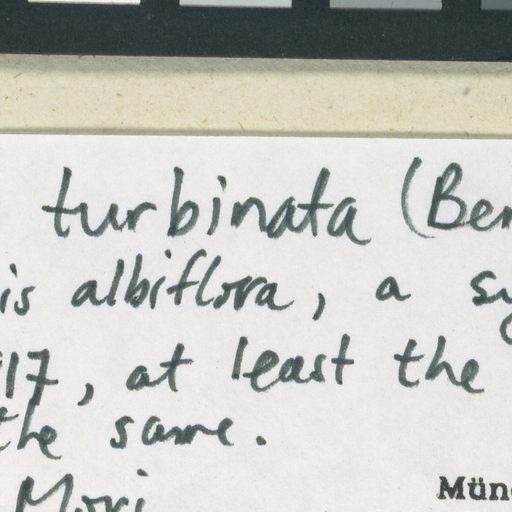 turbinata (Ber
is albiflora, a sy
'17, at least the
the same.
Mori
Mün